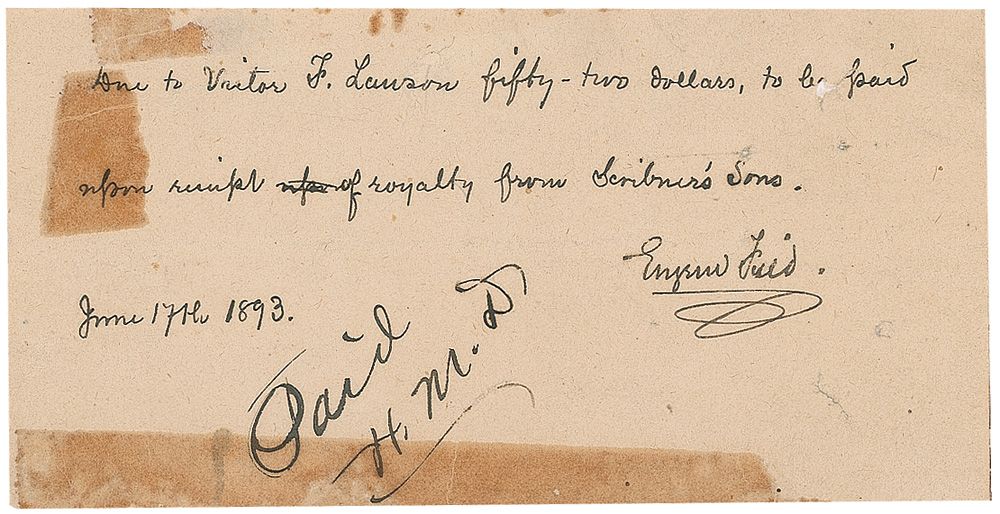 Due to Victor F. Lawson fifty-two dollars, to be paid
upon receipt upon of royalty from Scribner's Sons.
Eugene Field.
June 17th 1893.
Paid
H. M. D